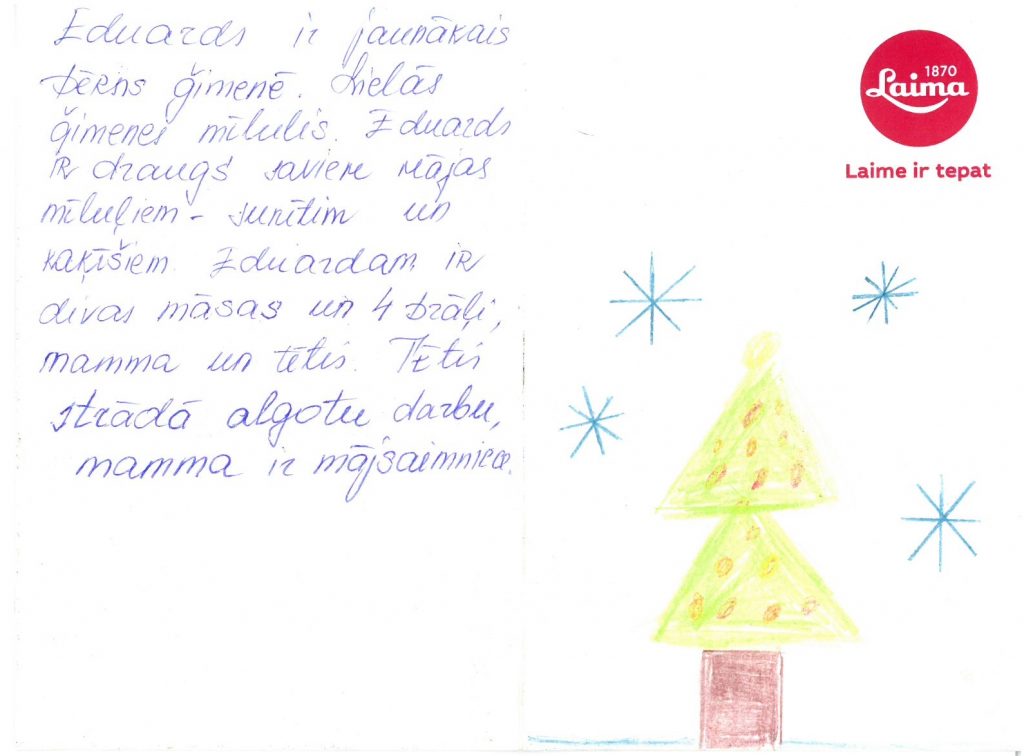 Eduards ir jaunākais
bērns ģimenē. Lielās
ģimenes mīlulis. Eduards
ir draugs saviem mājas
mīluļiem - sunītim un
kaķīšiem. Eduardam ir
divas māsas un 4 brāļi,
mamma un tētis. Tētis
strādā algotu darbu,
mamma ir mājsaimniece.
1870
Laima
Laime ir tepat